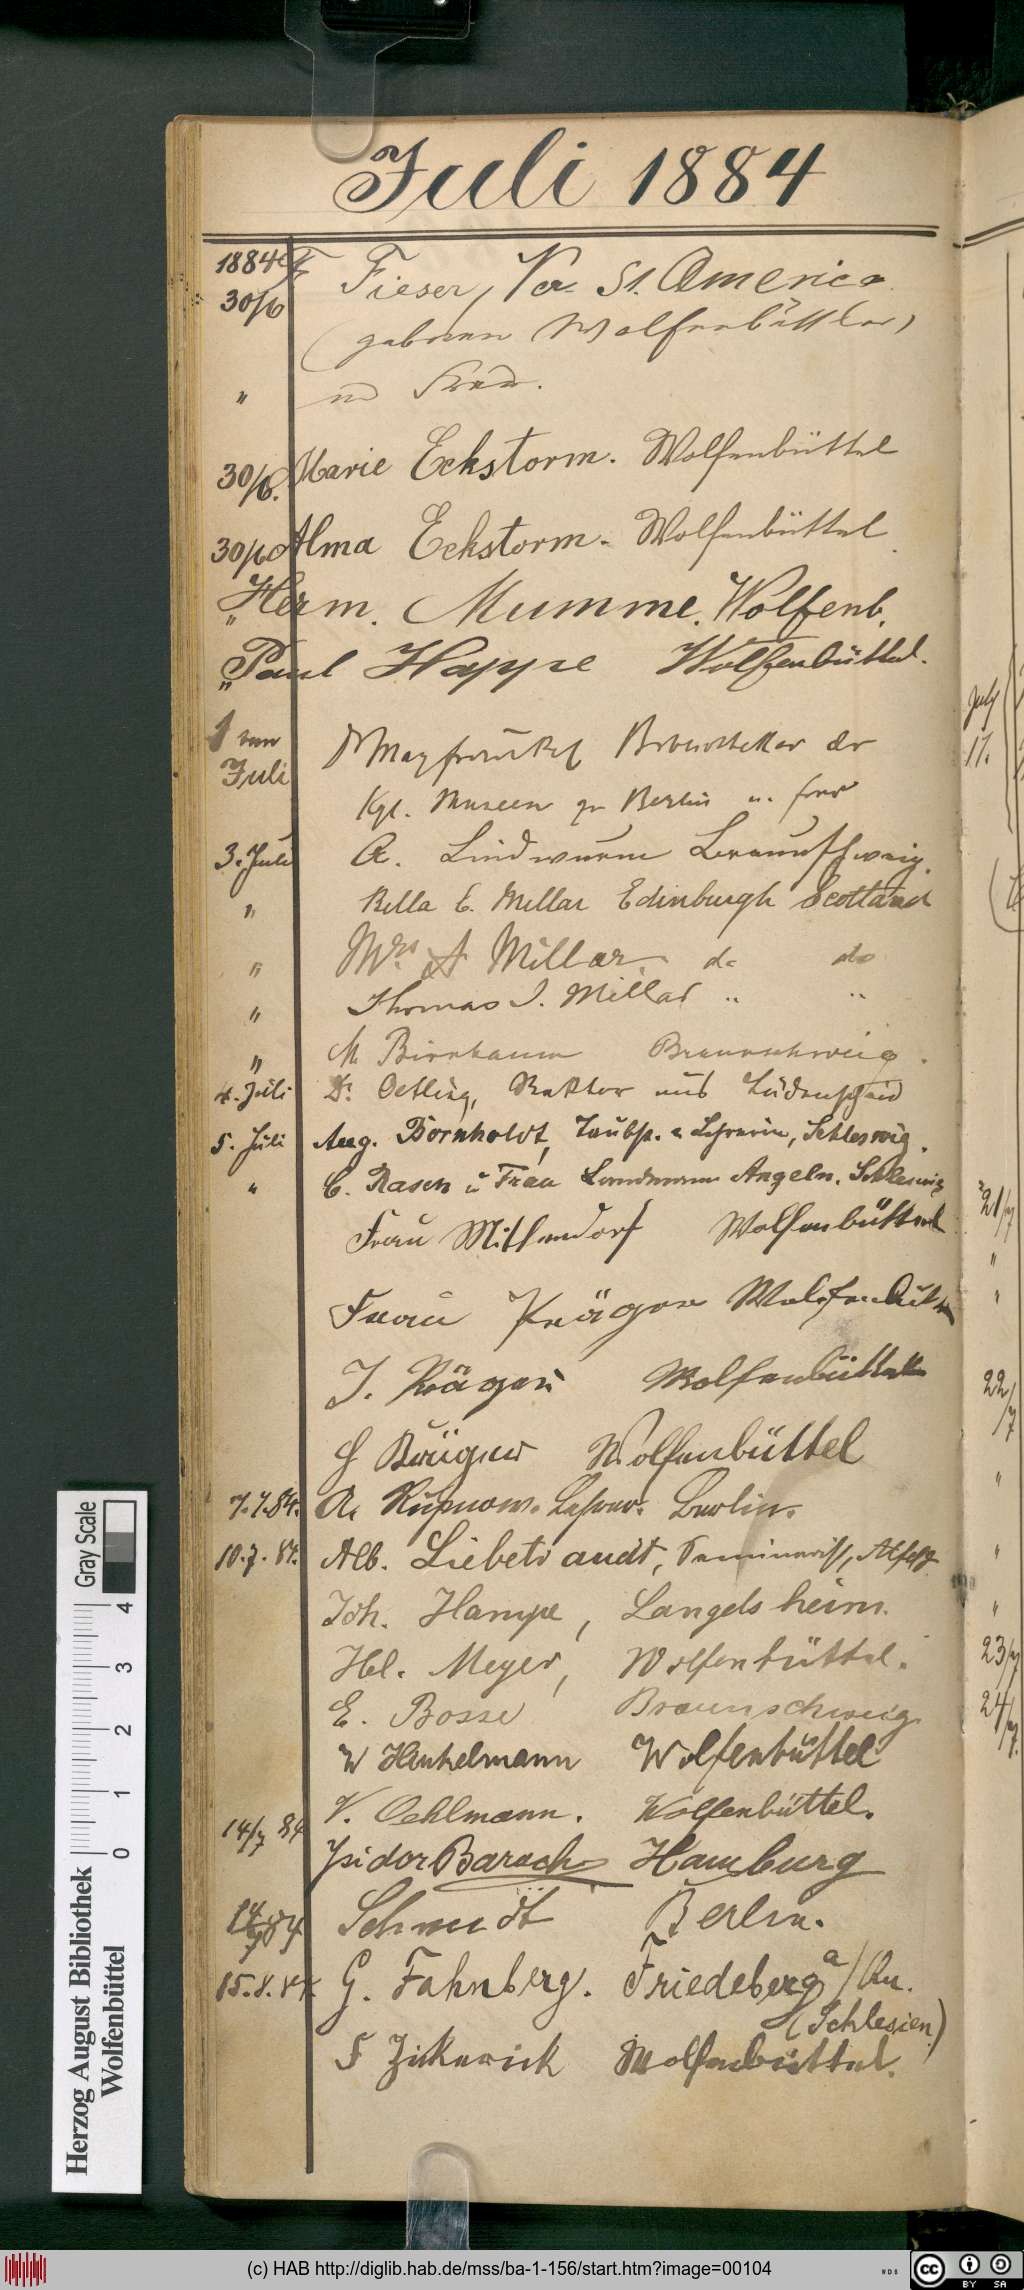 Juli 1884
1884 F Fieser, Ver. St. America
30/6
(geboren Wolfenbüttler)
" und Frau.
30/6. Marie Eckstorm. Wolfenbüttel
30/6 Alma Eckstorm. Wolfenbüttel
" Herm. Mumme. Wolfenb.
" Paul Happe Wolfenbüttel.
1 Bibliothekar der
Juli
Kgl. Museen zu Berlin u. Frau
3. Juli A. Lindwurm Braunschweig.
" Bella E. Millar Edinburgh Scotland
" Mrs. A Millar do do
" Thomas J. Millar " "
" M Birnbaum Braunschweig.
4. Juli Dr. Oetling, Rektor aus Lüdenscheid
5. Juli Aug. Bornholdt, Taubst. Lehrerin, Schleswig.
" C. Rasch u Frau Landmann Angeln. Schleswig
Frau Mittendorf Wolfenbüttel
Frau Kräger Wolfenbüttel
J. Kräger Wolfenbüttel
Krüger Wolfenbüttel
7.7.84. A. Rupnow. Lehrer. Berlin.
10.7.84. Alb. Liebetraudt, Seminarist, Alfeld
Joh. Hampe, Langelsheim.
Hel. Meyer, Wolfenbüttel.
E. Bosse Braunschweig
W Henkelmann Wolfenbüttel
V. Oehlmann. Wolfenbüttel.
14/7 84
Isidor Baruch Hamburg
14/7 84 Schmidt Berlin.
15.7.84. G. Fahnberg. Friedeberg a/Qu.
(Schlesien)
F Zickerick Wolfenbüttel.
July
17.
21/7
"
"
22/7
"
"
"
23/7
24/7.
Herzog August Bibliothek
Wolfenbüttel
0 1 2 3 4
Gray Scale
(c) HAB http://diglib.hab.de/mss/ba-1-156/start.htm?image=00104
WDB
cc
BY SA